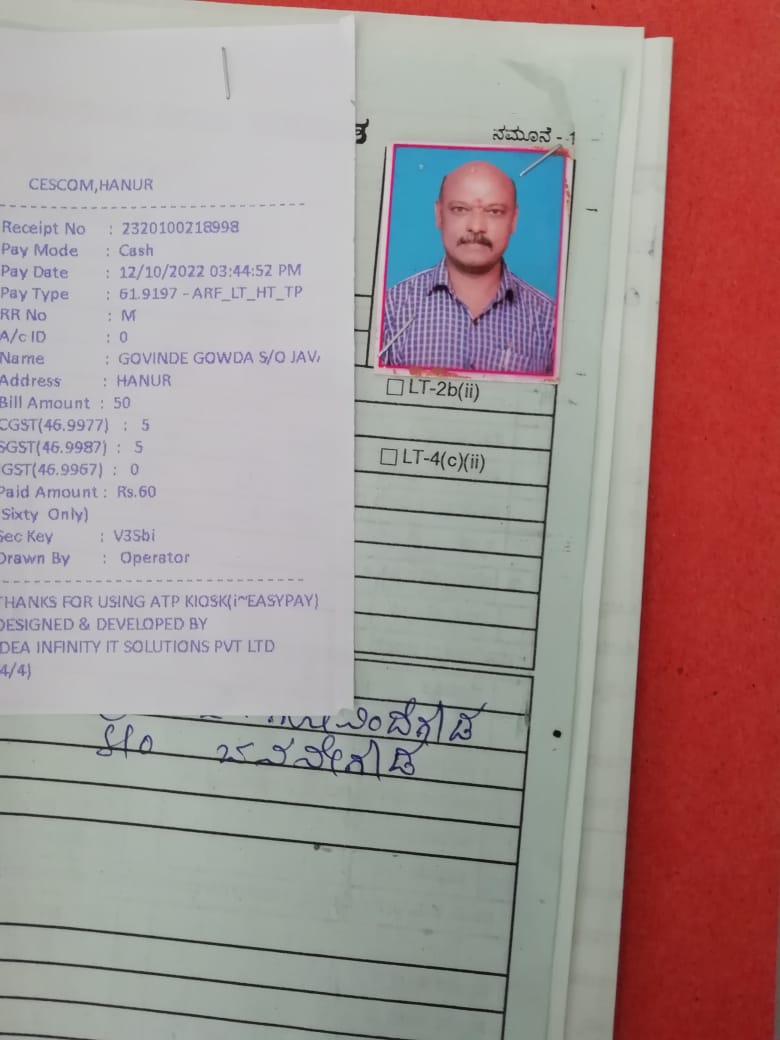 CESCOM,HANUR
Receipt No : 2320100218998
Pay Mode : Cash
Pay Date : 12/10/2022 03:44:52 PM
Pay Type : 61.9197 - ARF_LT_HT_TP
RR No : M
A/c ID : 0
Name : GOVINDE GOWDA S/O JAVA
Address : HANUR
Bill Amount : 50
CGST(46.9977) : 5
SGST(46.9987) : 5
IGST(46.9967) : 0
Paid Amount : Rs.60
(Sixty Only)
Sec Key : V3Sbi
Drawn By : Operator
THANKS FOR USING ATP KIOSK(i~EASYPAY)
DESIGNED & DEVELOPED BY
IDEA INFINITY IT SOLUTIONS PVT LTD
4/4)
ನಮೂನೆ - 1
LT-2b(ii)
LT-4(c)(ii)
ಗೋವಿಂದೇಗೌಡ
S/o ಜವನೇಗೌಡ